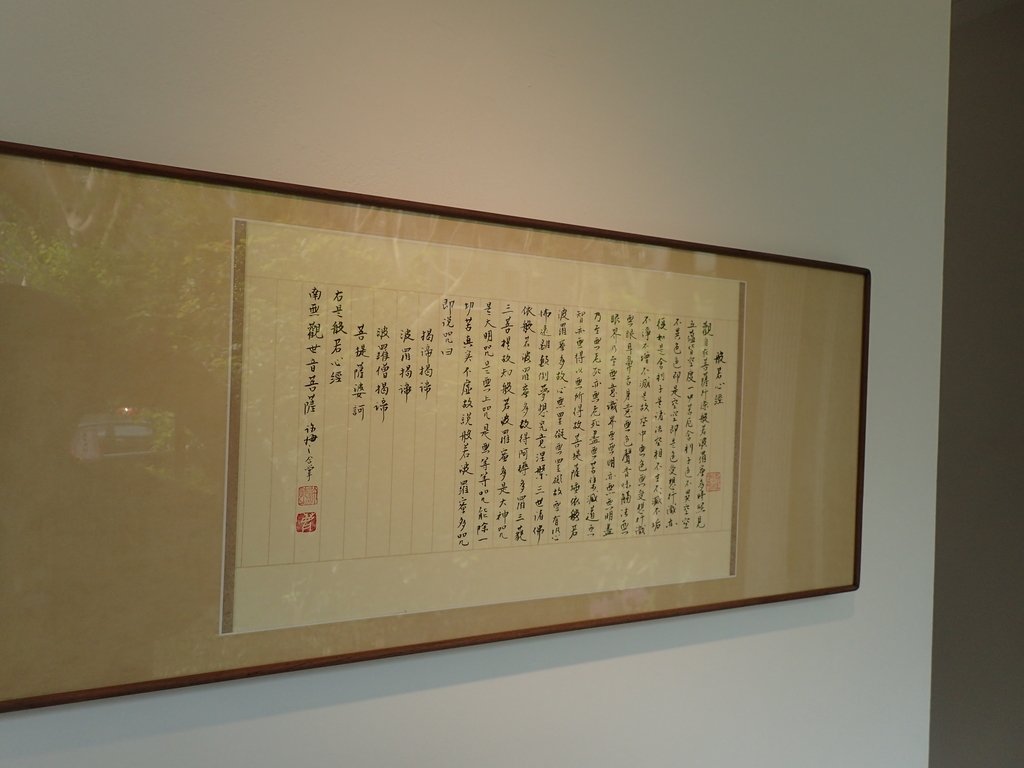 般若心經
觀自在菩薩行深般若波羅蜜多時照見
五蘊皆空度一切苦厄舍利子色不異空空
不異色色即是空空即是色受想行識亦
復如是舍利子是諸法空相不生不滅不垢
不淨不增不減是故空中無色無受想行識
無眼耳鼻舌身意無色聲香味觸法無
眼界乃至無意識界無無明亦無無明盡
乃至無老死亦無老死盡無苦集滅道無
智亦無得以無所得故菩提薩埵依般若
波羅蜜多故心無罣礙無罣礙故無有恐
怖遠離顛倒夢想究竟涅槃三世諸佛
依般若波羅蜜多故得阿耨多羅三藐
三菩提故知般若波羅蜜多是大神咒
是大明咒是無上咒是無等等咒能除一
切苦真實不虛故說般若波羅蜜多咒
即說咒曰
揭諦揭諦
波羅揭諦
波羅僧揭諦
菩提薩婆訶
右是般若心經
南無觀世音菩薩 合掌